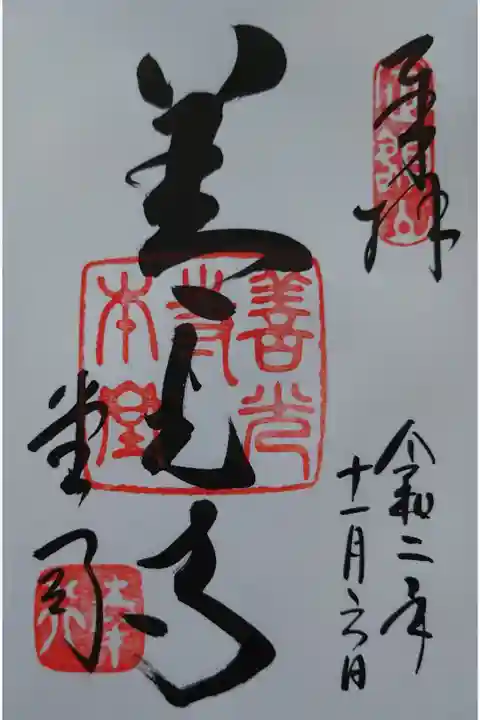 奉拝
定額山
令和二年
十一月六日
善光寺
善光
寺
本堂